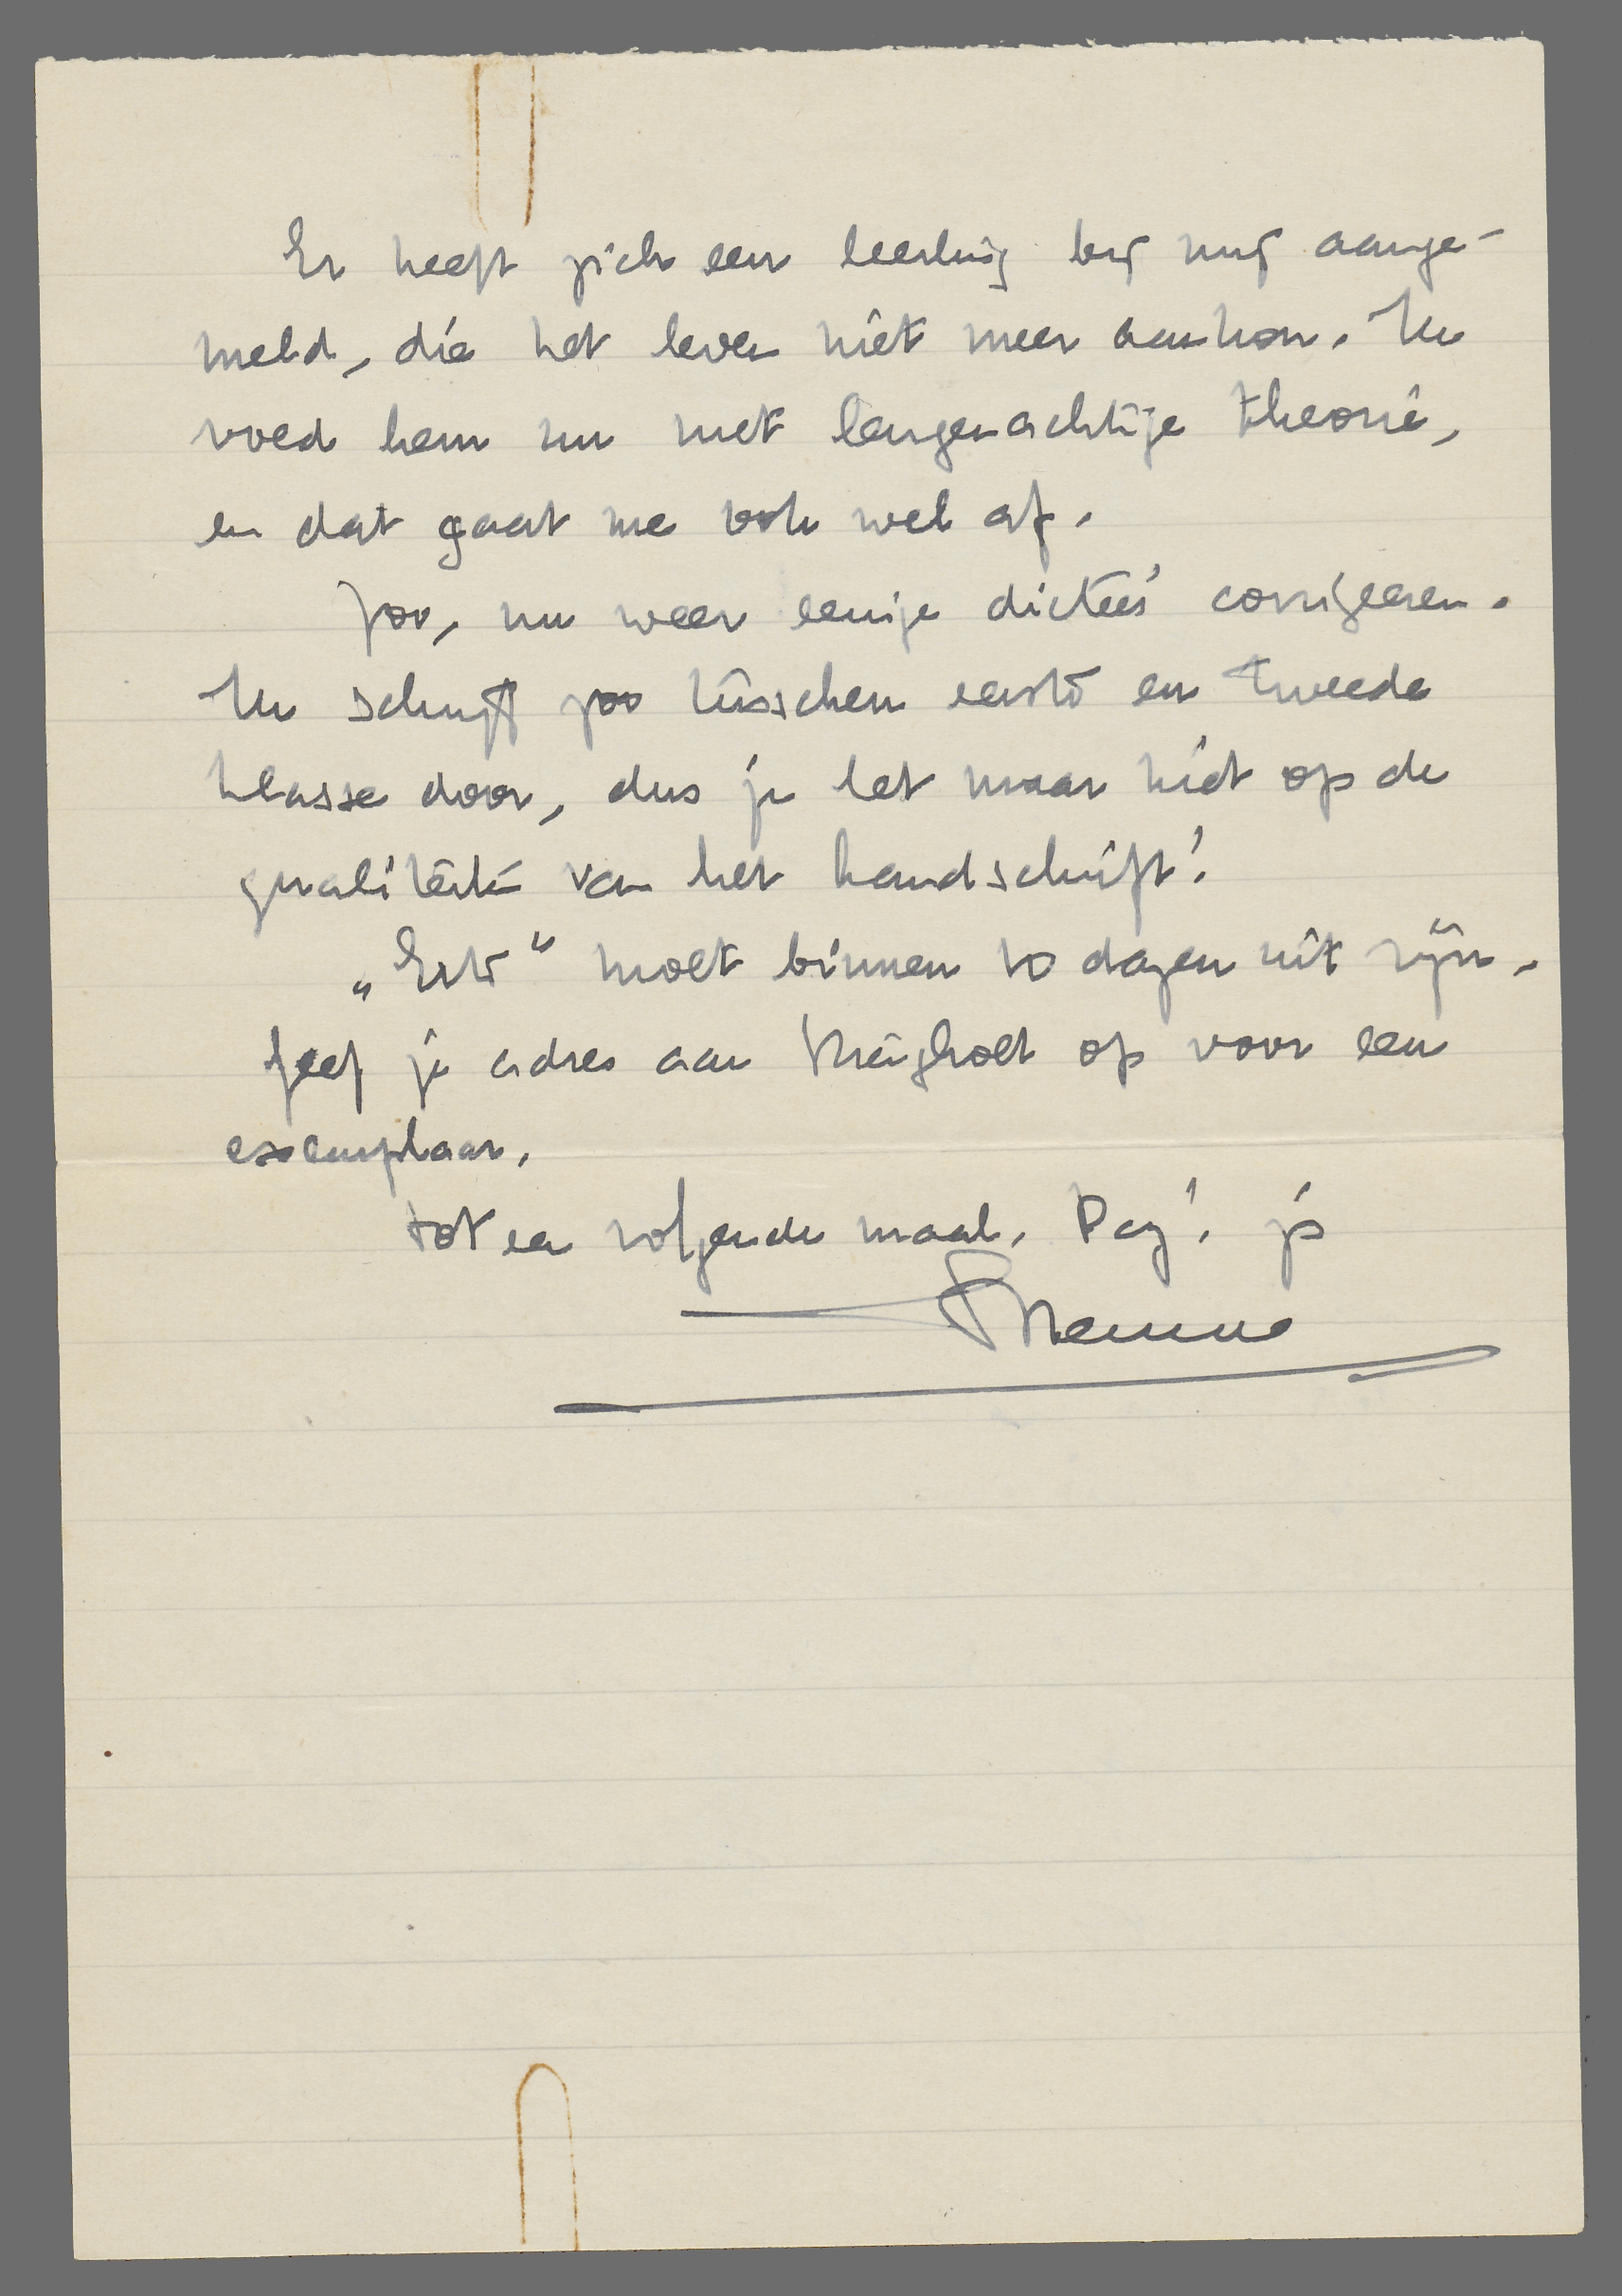 Er heeft zich een leerling bij mij aange-
meld, die het leven niet meer aankon. Ik
voed hem nu met leugenachtige theorie,
en dat gaat me ook wel af.
Zoo, nu weer eenige dictee's corrigeeren.
Ik schrijf zoo tusschen eerste en tweede
klasse door, dus je let maar niet op de
qualiteit van het handschrift!
„Erts" moet binnen 10 dagen uit zijn.
Geef je adres aan op voor een
exemplaar.
Tot een volgende maal. Dag! je
Menno